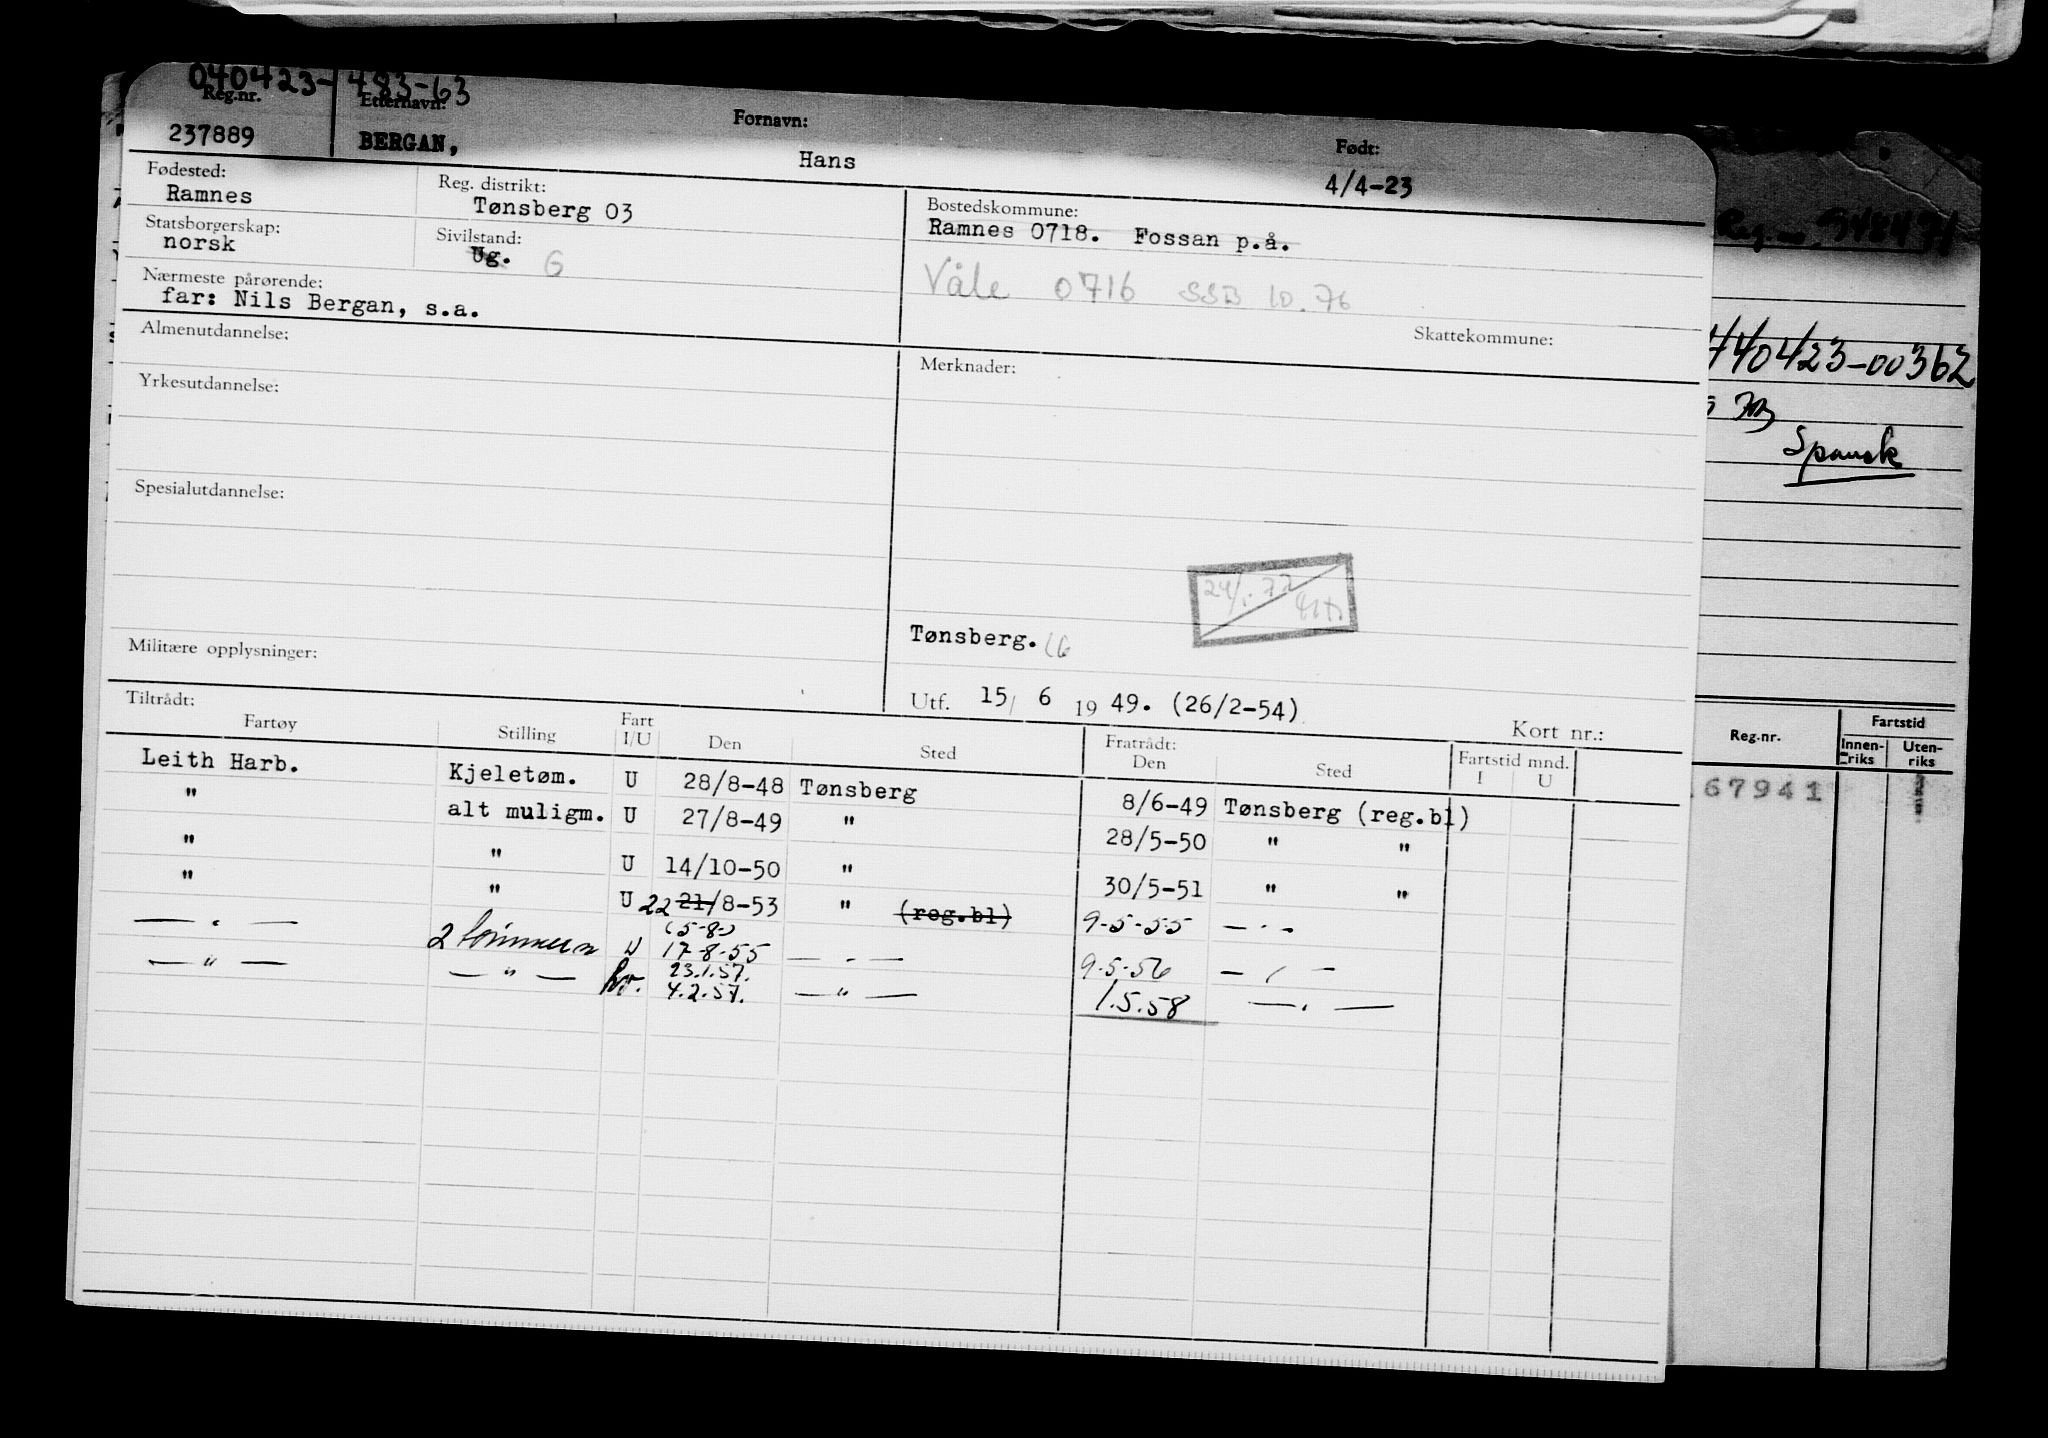 040423-483-63
Reg.nr. Etternavn: Fornavn: Født:
237889 BERGAN, Hans 4/4-23
Fødested: Reg. distrikt: Bostedskommune:
Ramnes Tønsberg 03 Ramnes 0718. Fossan p.å.
Statsborgerskap: Sivilstand:
norsk Ug. G
Våle 0716 SSB 10.76
Nærmeste pårørende:
far: Nils Bergan, s.a.
Skattekommune:
Almenutdannelse: Merknader:
Yrkesutdannelse:
Spesialutdannelse:
24/1.77
Tønsberg.
Militære opplysninger:
Utf. 15/ 6 1949. (26/2-54)
Kort nr.:
Tiltrådt: Fratrådt:
Fartøy Stilling Fart I/U Den Sted Den Sted Fartstid mnd. I U
Leith Harb. Kjeletøm. U 28/8-48 Tønsberg 8/6-49 Tønsberg (reg.bl)
" alt muligm. U 27/8-49 " 28/5-50 " "
" " U 14/10-50 " 30/5-51 " "
" " U 22 21/8-53 " (reg.bl) 9-5-55 — . —
(5-8-)
— . — 2 tømmerm U 17-8-55 — . — 9.5-56 — , —
23.1.57.
— " — — " — 4.2.57. — " — 1.5.58 — . —
Reg.nr. 348471
040423-00362
Spansk
Reg.nr. Fartstid
Innenriks Utenriks
67941